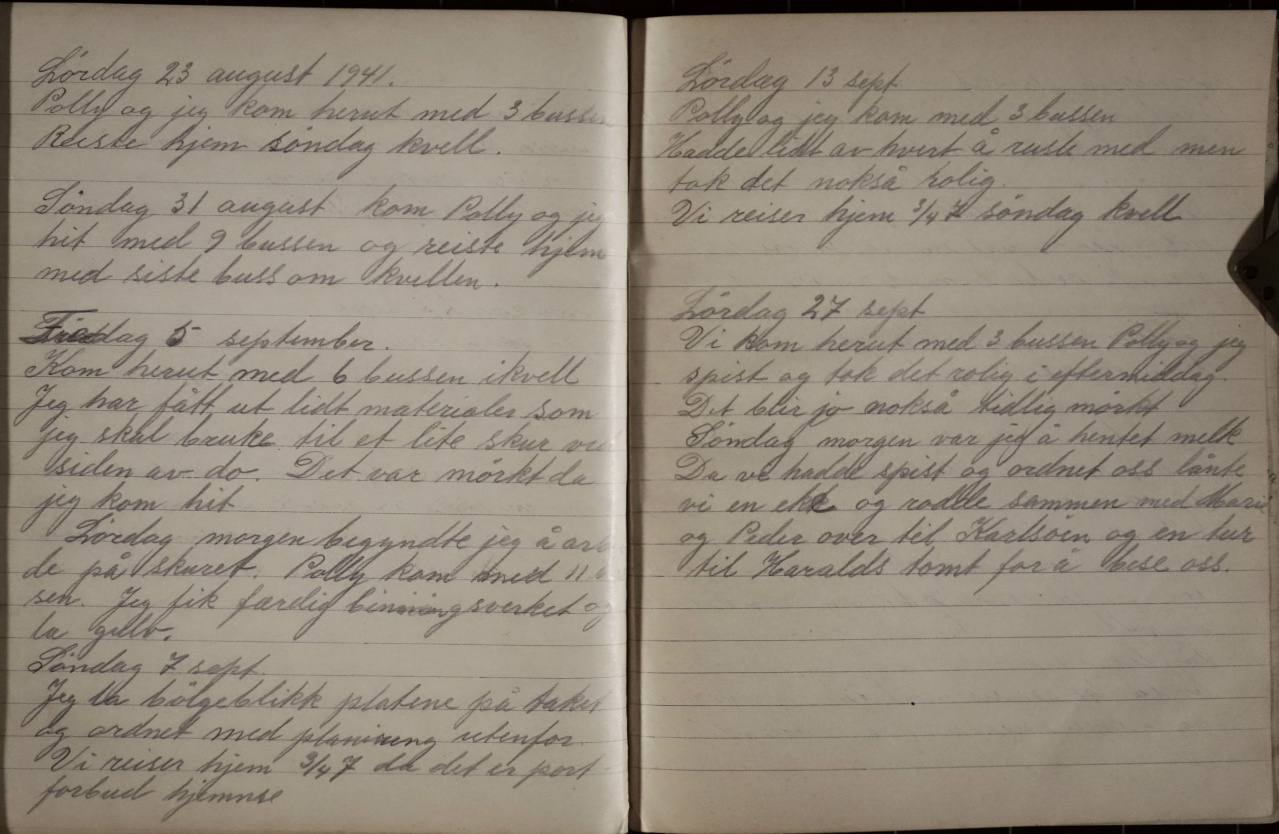 Lördag 23 august 1941.
Polly og jeg kom herut med 3 bussen
Reiste hjem söndag kvell.
Söndag 31 august kom Polly og jeg
hit med 9 bussen og reiste hjem
med siste buss om kvellen.
Fredag 5 september.
Kom herut med 6 bussen ikvell
Jeg har fått ut lidt materialer som
jeg skal bruke til et lite skur ved
siden av do. Det var mörkt da
jeg kom hit
Lördag morgen begyndte jeg å arbe
de på skuret. Polly kom med 11
sen. Jeg fik færdig binningsverket og
la gulv.
Söndag 7 sept
Jeg la bölgeblikk platene på taket
og ordnet med planering utenfor
Vi reiser hjem 3/4 7 da det er port
forbud hjemme
Lördag 13 sept
Polly og jeg kom med 3 bussen
Hadde lidt av hvert å rusle med men
tok det nokså rolig.
Vi reiser hjem 3/4 7 söndag kvell
Lördag 27 sept
Vi kom herut med 3 bussen Polly og jeg
spist og tok det rolig i eftermiddag.
Det blir jo nokså tidlig mörkt
Söndag morgen var jeg å hentet melk
Da vi hadde spist og ordnet oss lånte
vi en eke og rodde sammen med Marie
og Peder over til Karlsöin og en tur
til Haralds tomt for å bese oss.